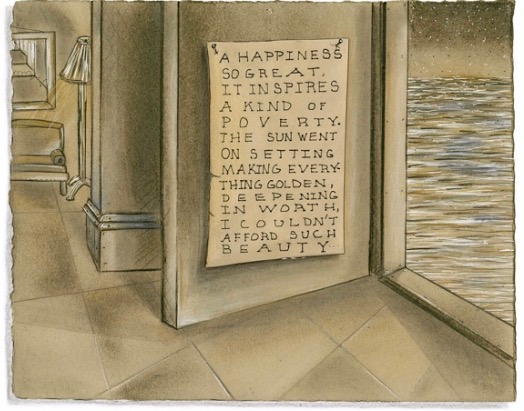 A HAPPINESS
SO GREAT,
IT INSPIRES
A KIND OF
POVERTY.
THE SUN WENT
ON SETTING
MAKING EVERY-
THING GOLDEN,
DEEPENING
IN WORTH,
I COULDN'T
AFFORD SUCH
BEAUTY